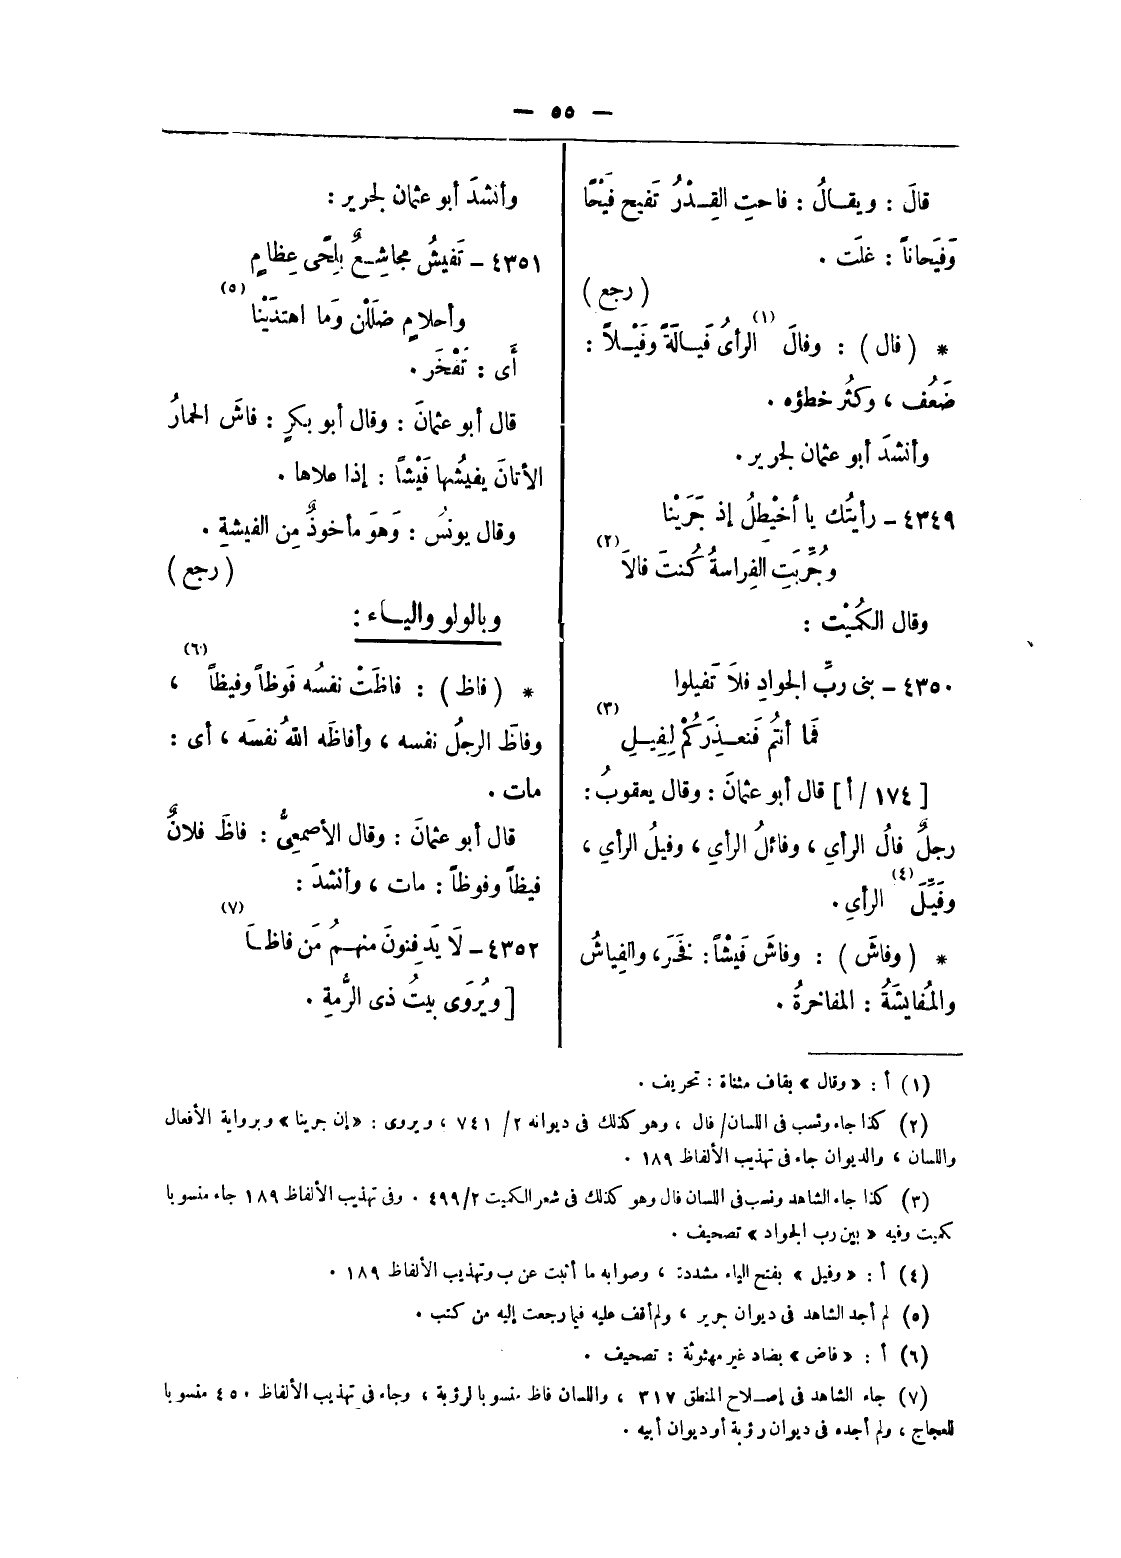 — ٥٥ —
قالَ : ويقـالُ : فاحتِ القِـدْرُ تَفيح فَيْحًا
وَفَيَحاناً : غلَت .
( رجع )
* ( فال ) : وفالَ (١) الرأىُ فَيـالَةً وفَيْـلاً :
ضَعُف ، وكثُر خطؤه .
وأنشدَ أبو عثمان لجرير .
٤٣٤٩ – رأيتُك يا أخَيْطِلُ إذ جَرَيْنا
وجُرِّبَتِ الفِراسةُ كُنتَ فالاَ (٢)
وقال الكُمَيْت :
٤٣٥٠ – بنى ربِّ الجوادِ فلاَ تَفيلوا
فَما أنتُم فَنعـذِرَكُمْ لِفِيـلِ (٣)
[ ١٧٤ / أ ] قال أبو عثمانَ : وقال يعقوبُ :
رجلٌ فالُ الرأىِ ، وفائلُ الرأىِ ، وفيلُ الرأىِ ،
وفَيِّلَ (٤) الرأىِ .
* ( وفاشَ ) : وفاشَ فَيشًا : فَخَرَ ، والفِياشُ
والمُفايشَةُ : المفاخرةُ .
وأنشدَ أبو عثمان لجرير :
٤٣٥١ – تَفيشُ مجاشِـعٌ بِلِحًى عِظامٍ
وأحلامٍ ضلَلْن وَما اهتدَيْنا (٥)
أَى : تَفْخَر .
قال أبو عثمانَ : وقال أبو بكرٍ : فاشَ الحمارُ
الأتانَ يفيشُها فَيْشًا : إذا علاها .
وقال يونسُ : وَهوَ مأخوذٌ مِن الفيشةِ .
( رجع )
وبالولو والياء :
* ( فاظ ) : فاظَتْ نفسُه فَوظاً وفيظاً (٦) ،
وفاظَ الرجلُ نفسه ، وأفاظَه اللهُ نفسَه ، أى :
مات .
قال أبو عثمانَ : وقال الأصمعىُّ : فاظَ فلانٌ
فيظاً وفوظاً : مات ، وأنشدَ :
٤٣٥٢ – لاَ يَدفِنونَ منهـمُ مَن فاظـاَ (٧)
[ ويُروَى بيتُ ذى الرُّمةِ .
(١) أ : «وقال» بقاف مثناة : تحريف .
(٢) كذا جاء ونسب فى اللسان/ فال ، وهو كذلك فى ديوانه ٢/ ٧٤١ ، ويروى : «إن جرينا» وبرواية الأفعال
واللسان ، والديوان جاء فى تهذيب الألفاظ ١٨٩ .
(٣) كذا جاء الشاهد ونسب فى اللسان فال وهو كذلك فى شعر الكميت ٤٩٩/٢ . وفى تهذيب الألفاظ ١٨٩ جاء منسوبا
كميت وفيه « بين رب الجواد » تصحيف .
(٤) أ : « وفيل » بفتح الياء مشددة ، وصوابه ما أثبت عن ب وتهذيب الألفاظ ١٨٩ .
(٥) لم أجد الشاهد فى ديوان جرير ، ولم أقف عليه فيما رجعت إليه من كتب .
(٦) أ : « فاض » بضاد غير مهثوثة : تصحيف .
(٧) جاء الشاهد فى إصلاح المنطق ٣١٧ ، واللسان فاظ منسوبا لرؤبة ، وجاء فى تهذيب الألفاظ ٤٥٠ منسوبا
للعجاج ، ولم أجده فى ديوان رؤبة أو ديوان أبيه .